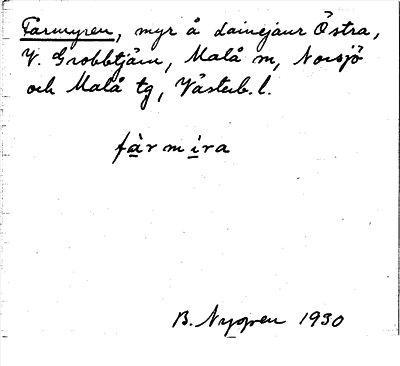 Farmyren, myr å Lainejaur Östra,
V. Grobbtjärn, Malå sn, Norsjö
och Malå tg, Västerb. l.
fàrmira
B. Nygren 1930